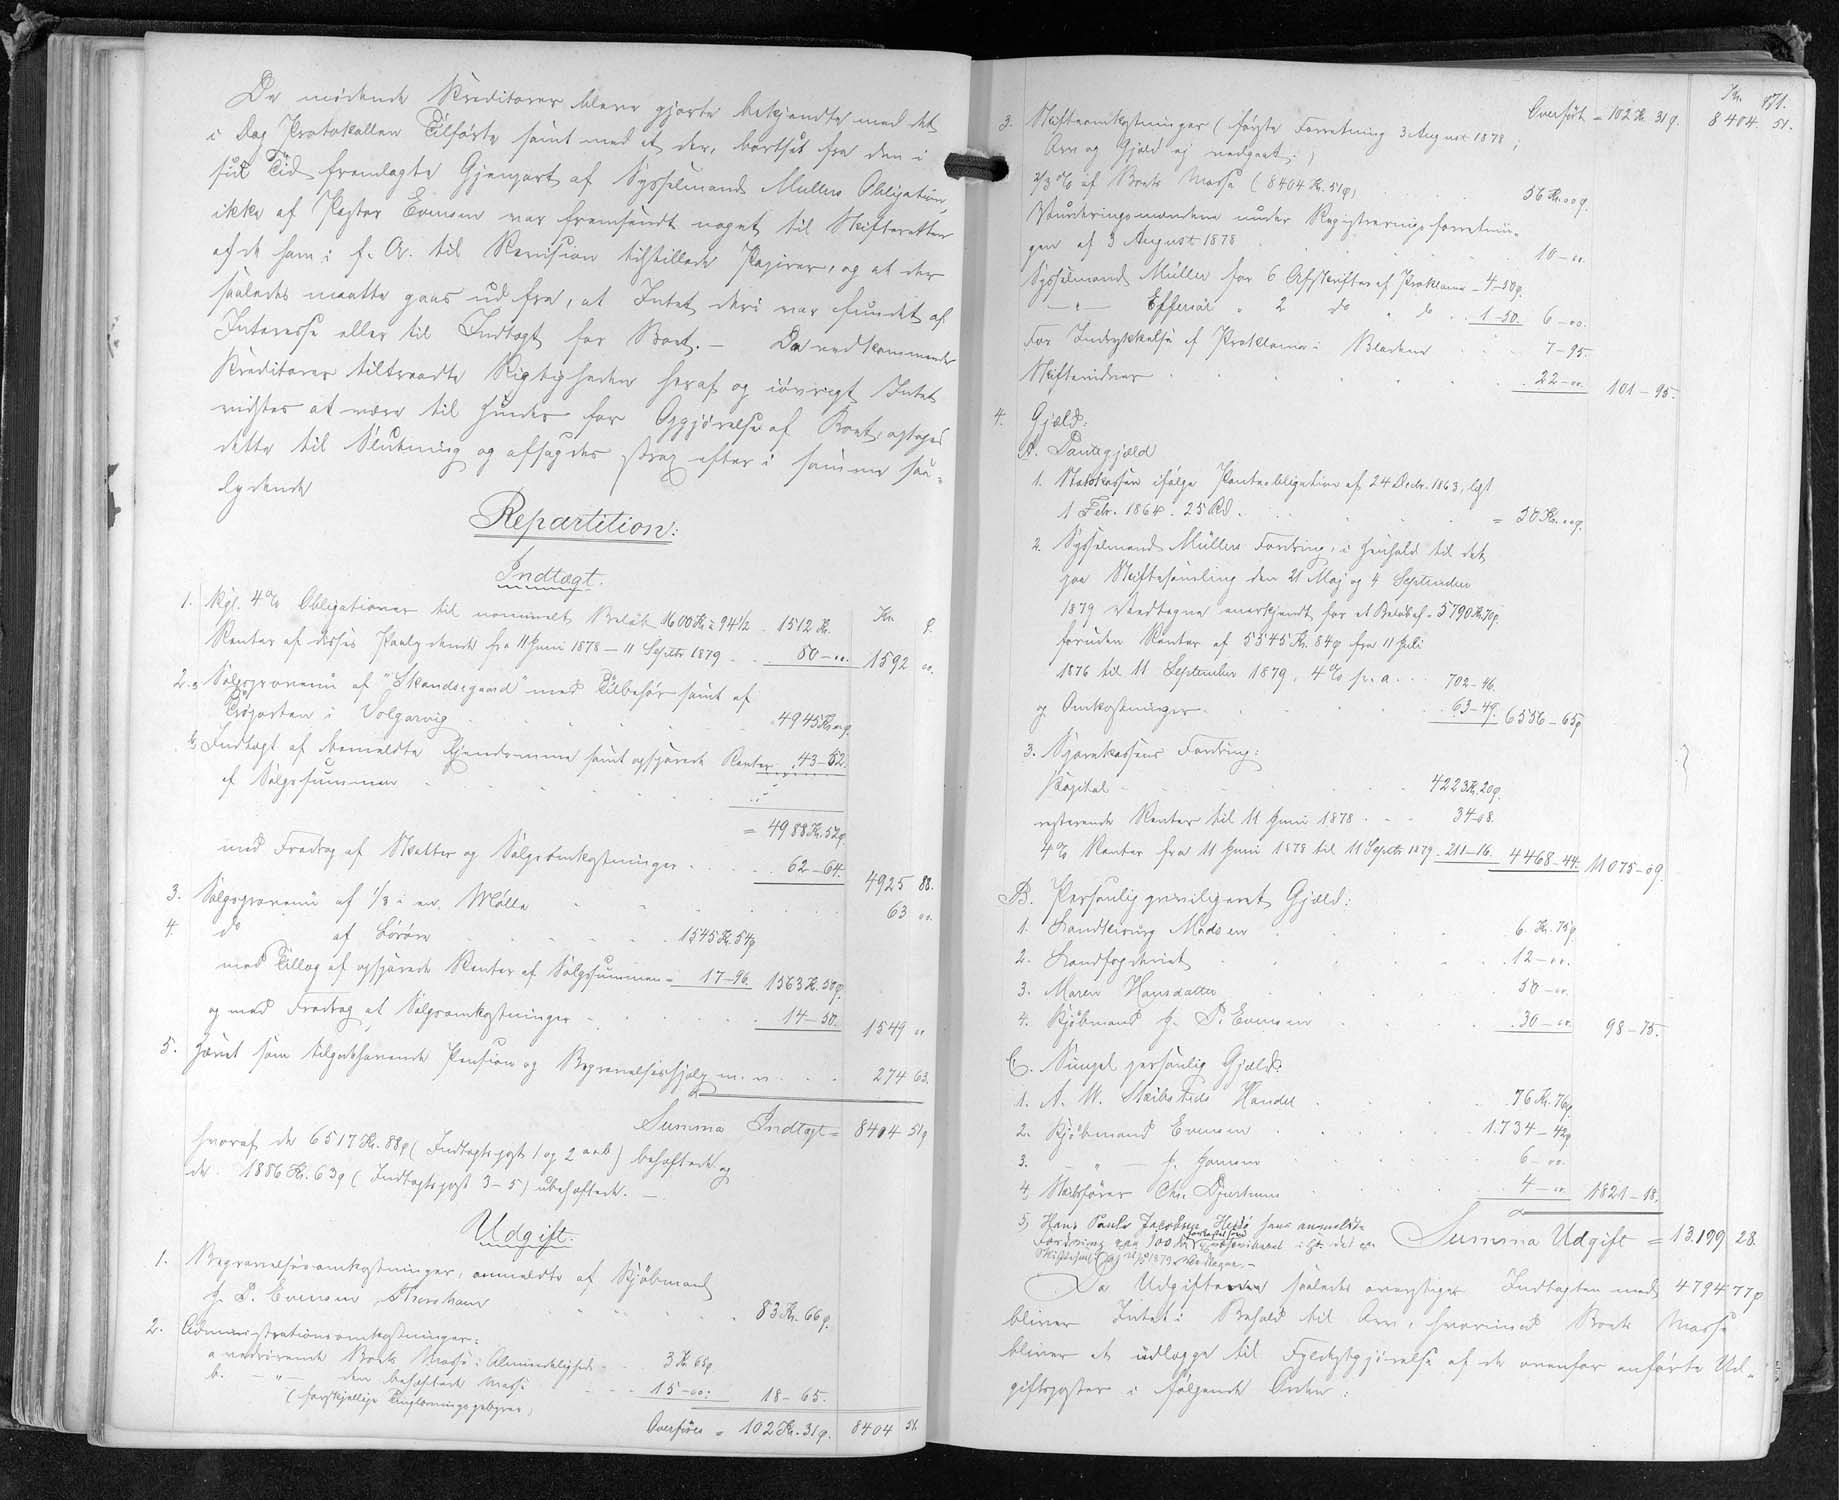 De mødende Kreditorer bleve gjorte bekjendte med det
i Dag Protokollen Tilførte samt med at der, bortset fra den i
sin Tid fremlagte Gjenpart af Sysselmand Müllers Obligation,
ikke af Pastor Evensen var fremsendt noget til Skifteretten
af de ham i f. A. til Revision tilstillede Papirer, og at der
saaledes maatte gaaes ud fra, at Intet deri var fundet af
Interesse eller til Indtægt for Boet. — Da vedkommende
Kreditorer tiltraadte Rigtigheden heraf og iøvrigt Intet
vidstes at være til Hinder for Opgjørelse af Boet, optoges
dette til Slutning og afsagdes strax efter i samme saa=
lydende
Repartition:
Indtægt.
Kr. Ø.
1. Kgl. 4% Obligationer til nominelt Beløb 1600 Kr. à 94½ . 1512 Kr.
Renter af disses Paalydende fra 11 Juni 1878 — 11 Septbr 1879 . . 80 — 00. 1592 00.
2. a Salgsprovenu af "Skandsegaard" med Tilbehør samt af
i Volgarvig . . . 4945 Kr. 00 Ø.
b, Indtægt af bemeldte Ejendomme samt opsparede Renter . 43 — 52.
af Salgssummen . . .
= 4988 Kr. 52 Ø.
med Fradrag af Skatter og Salgsomkostninger . . . . 62 — 64. 4925 88.
3. Salgsprovenu af 1/3 i en Mølle . . . 63 00.
4. do af Løsøre . . . 1545 Kr. 54 Ø
med Tillæg af opsparede Renter af Salgssummen = 17 — 96. 1563 Kr. 50 Ø.
og med Fradrag af Salgsomkostninger . . . 14 — 50. 1549 00
5. Hævet som tilgodehavende Pension og Begravelseshjælp m. v. . . . 274 63.
Summa Indtægt = 8404 51 Ø
hvoraf de 6517 Kr. 88 Ø (Indtægtspost 1 og 2 a & b) behæftede og
de 1886 Kr. 63 Ø (Indtægtspost 3 — 5) ubehæftede. —
Udgift.
1. Begravelsesomkostninger, anmeldte af Kjøbmand
J. P. Evensen Thorshavn . . . 83 Kr. 66 Ø.
2. Administrationsomkostninger:
a vedrørende Boets Masse i Almindelighed . . 3 Kr 65 Ø
b. — " — den behæftede Masse . . . 15 — 00. 18 — 65.
(forskjellige Tinglæsningsgebyrer)
Overføres = 102 Kr. 31 Ø. 8404 51.
171.
Kr.
Overført = 102 Kr. 31 Ø. 8404. 51.
3. Skifteomkostninger (første Forretning 3 August 1878;
Arv og Gjæld ej vedgaaet.)
2/3 % af Boets Masse (8404 Kr. 51 Ø) . . . 56 Kr. 00 Ø.
Vurderingsmændene under Registreringsforretnin=
gen af 3 August 1878 . . . 10 — 00.
Sysselmand Müller for 6 Afskrifter af Proklama — 4 — 50 Ø.
— " — Effersøe " 2 do " do . . 1 — 50. 6 — 00.
For Indrykkelse af Proklama i Bladene . . . 7 — 95.
Skiftevidner . . . 22 — 00. 101 — 95.
4. Gjæld:
A. Pantegjæld
1. Statskassen ifølge Panteobligation af 24 Decbr. 1863, læst
1 Febr. 1864. 25 Rd. . . . = 50 Kr. 00 Ø.
2. Sysselmand Müllers Fordring, i Henhold til det
paa Skiftesamling den 21 Maj og 4 September
1879 Vedtagne anerkjendt for et Beløb af — 5790 Kr. 70 Ø
foruden Renter af 5545 Kr. 84 Ø fra 11 Juli
1876 til 11 September 1879, 4% p. a. . . 702 — 46.
og Omkostninger . . . 63 — 49. 6556 — 65 Ø
3. Sparekassens Fordring:
Kapital . . . 4223 Kr. 20 Ø.
resterende Renter til 11 Juni 1878 . . . 34 — 08.
4% Renter fra 11 Juni 1878 til 11 Septbr 1879 . 211 — 16. 4468 — 44. 11075 — 09.
B. Personlig privilegeret Gjæld:
1. Landkirurg Madsen . . . 6 Kr. 75 Ø.
2. Landfogderiet . . . 12 — 00.
3. Maren Hansdatter . . . 50 — 00.
4. Kjøbmand J. P. Evensen . . . 30 — 00. 98 — 75.
C. Simpel personlig Gjæld:
1. A. W. Handel . . . 76 Kr. 76 Ø.
2. Kjøbmand Evensen . . . 1.734 — 42 Ø
3. — " — J. . . . 6 — 00.
4, Chr. . . . 4 — 00. 1821 — 18.
5, Hans Paule Jacobsen hans anmeldte
Fordring paa 100 Kr. bortfalder i H. t. det
Vedtagne. —
Summa Udgift = 13.199 28.
Da Udgifterne saaledes overstiger Indtægten med 4794 77 Ø
bliver Intet i Behold til Arv, hvorimod Boets Masse
bliver at udlægge til Fyldestgjørelse af de ovenfor anførte Ud=
giftsposter i følgende Orden: